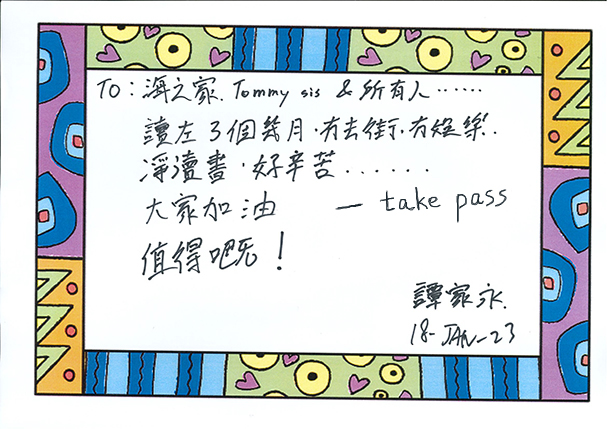 TO: 海之家. Tommy sis & 所有人......
讀左3個幾月.冇去街.冇娛樂.
淨讀書.好辛苦......
大家加油 — take pass
值得嘅!
譚家永.
18-JAN-23